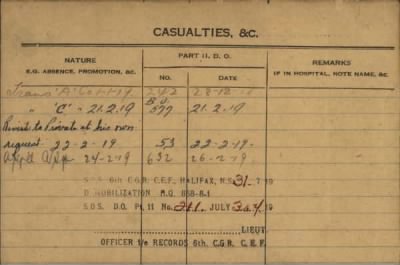 CASUALTIES, &C.
NATURE
E.G. ABSENCE, PROMOTION, &C.
PART II. D. O.
NO.
DATE
REMARKS
IF IN HOSPITAL, NOTE NAME, &C.
Trans 'A' 242
" "C" 21.2.19 B.O. 577 21.2.19
Reverts to Private at his own
request. 22-2-19 53 22-2-19
24-2-19 632 26-2-19
S.O.S. 6th C.G.R. C.E.F. HALIFAX, N.S. 31-7.19
DEMOBILIZATION M.Q. 888-8-1
S.O.S. D.O. Pt. 11 No. 211. JULY 30th 19
LIEUT.
OFFICER i/c RECORDS 6th. C.G.R. C.E.F.